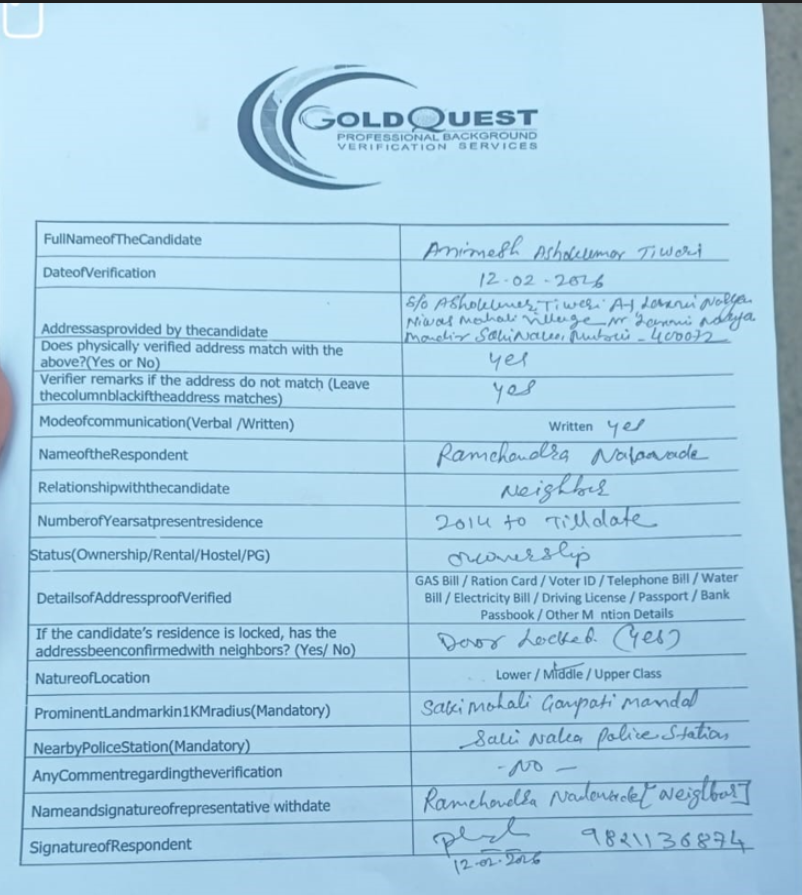 GOLDQUEST
PROFESSIONAL BACKGROUND
VERIFICATION SERVICES
FullNameofTheCandidate Animesh Ashokkumar Tiwari
DateofVerification 12-02-2026
S/o Ashokkumar Tiwari
Niwas Mohali Village Nr
Addressasprovided by thecandidate Mandir Sakinaka, Mumbai - 400072
Does physically verified address match with the
above?(Yes or No) yes
Verifier remarks if the address do not match (Leave
thecolumnblackiftheaddress matches) yes
Modeofcommunication(Verbal /Written) Written yes
NameoftheRespondent Ramchandra
Relationshipwiththecandidate Neighbor
NumberofYearsatpresentresidence 2014 to Tilldate
Status(Ownership/Rental/Hostel/PG) ownership
GAS Bill / Ration Card / Voter ID / Telephone Bill / Water
DetailsofAddressproofVerified Bill / Electricity Bill / Driving License / Passport / Bank
Passbook / Other M ntion Details
If the candidate's residence is locked, has the
addressbeenconfirmedwith neighbors? (Yes/ No) Door Locked (Yes)
NatureofLocation Lower / Middle / Upper Class
ProminentLandmarkin1KMradius(Mandatory) Saki Mohali Ganpati Mandal
NearbyPoliceStation(Mandatory) Saki Naka Police Station
AnyCommentregardingtheverification - No -
Nameandsignatureofrepresentative withdate Ramchandra [Neighbor]
SignatureofRespondent 9821136874
12-02-2026